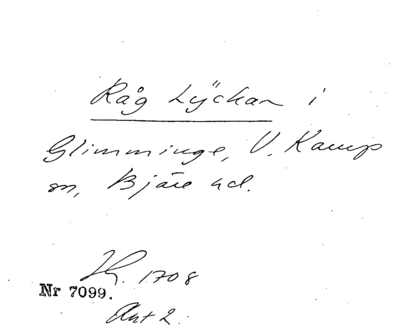 Råg Lÿckan i
Glimminge, V. Karup
sn, Bjäre hd.
Jb. 1708
Nr 7099.
Akt 2.